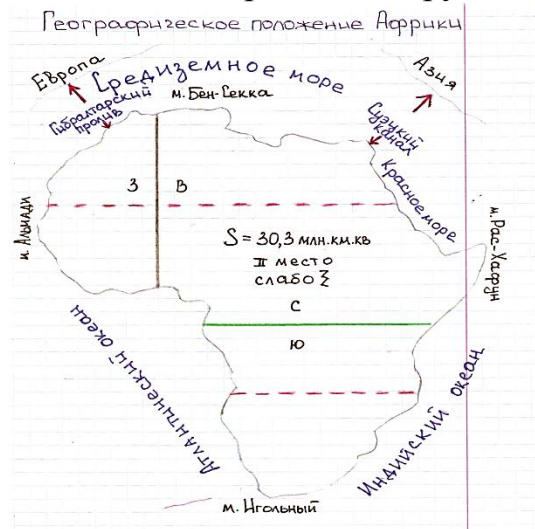 Географическое положение Африки
Европа
Средиземное море
Азия
м. Бен-Секка
Гибралтарский
пролив
Суэцкий
канал
Красное море
З В
м. Альмади
S = 30,3 млн.км.кв
II место
слабо
м. Рас-Хафун
С
Ю
Атлантический океан
Индийский океан
м. Игольный